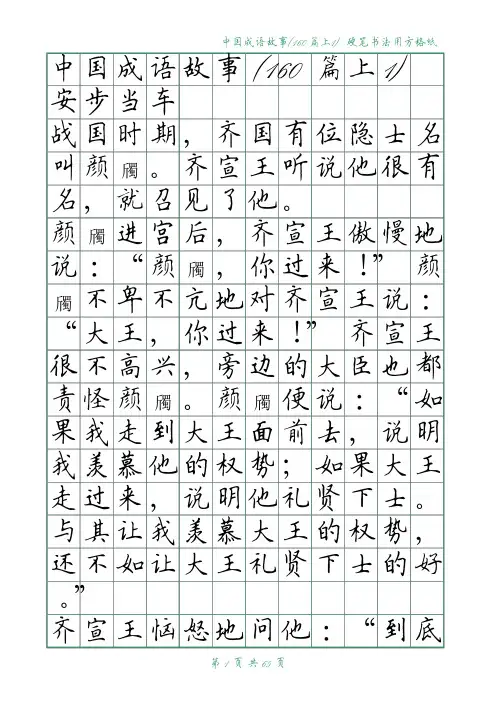 中国成语故事(160篇上1) 硬笔书法用方格纸
中国成语故事(160 篇上1)
安步当车
战国时期，齐国有位隐士名
叫颜斶。齐宣王听说他很有
名，就召见了他。
颜斶进宫后，齐宣王傲慢地
说：“颜斶，你过来！” 颜
斶不卑不亢地对齐宣王说：
“大王，你过来！” 齐宣王
很不高兴，旁边的大臣也都
责怪颜斶。颜斶便说：“如
果我走到大王面前去，说明
我羡慕他的权势；如果大王
走过来，说明他礼贤下士。
与其让我羡慕大王的权势，
还不如让大王礼贤下士的好
。”
齐宣王恼怒地问他：“到底
第 1 页 共 65 页